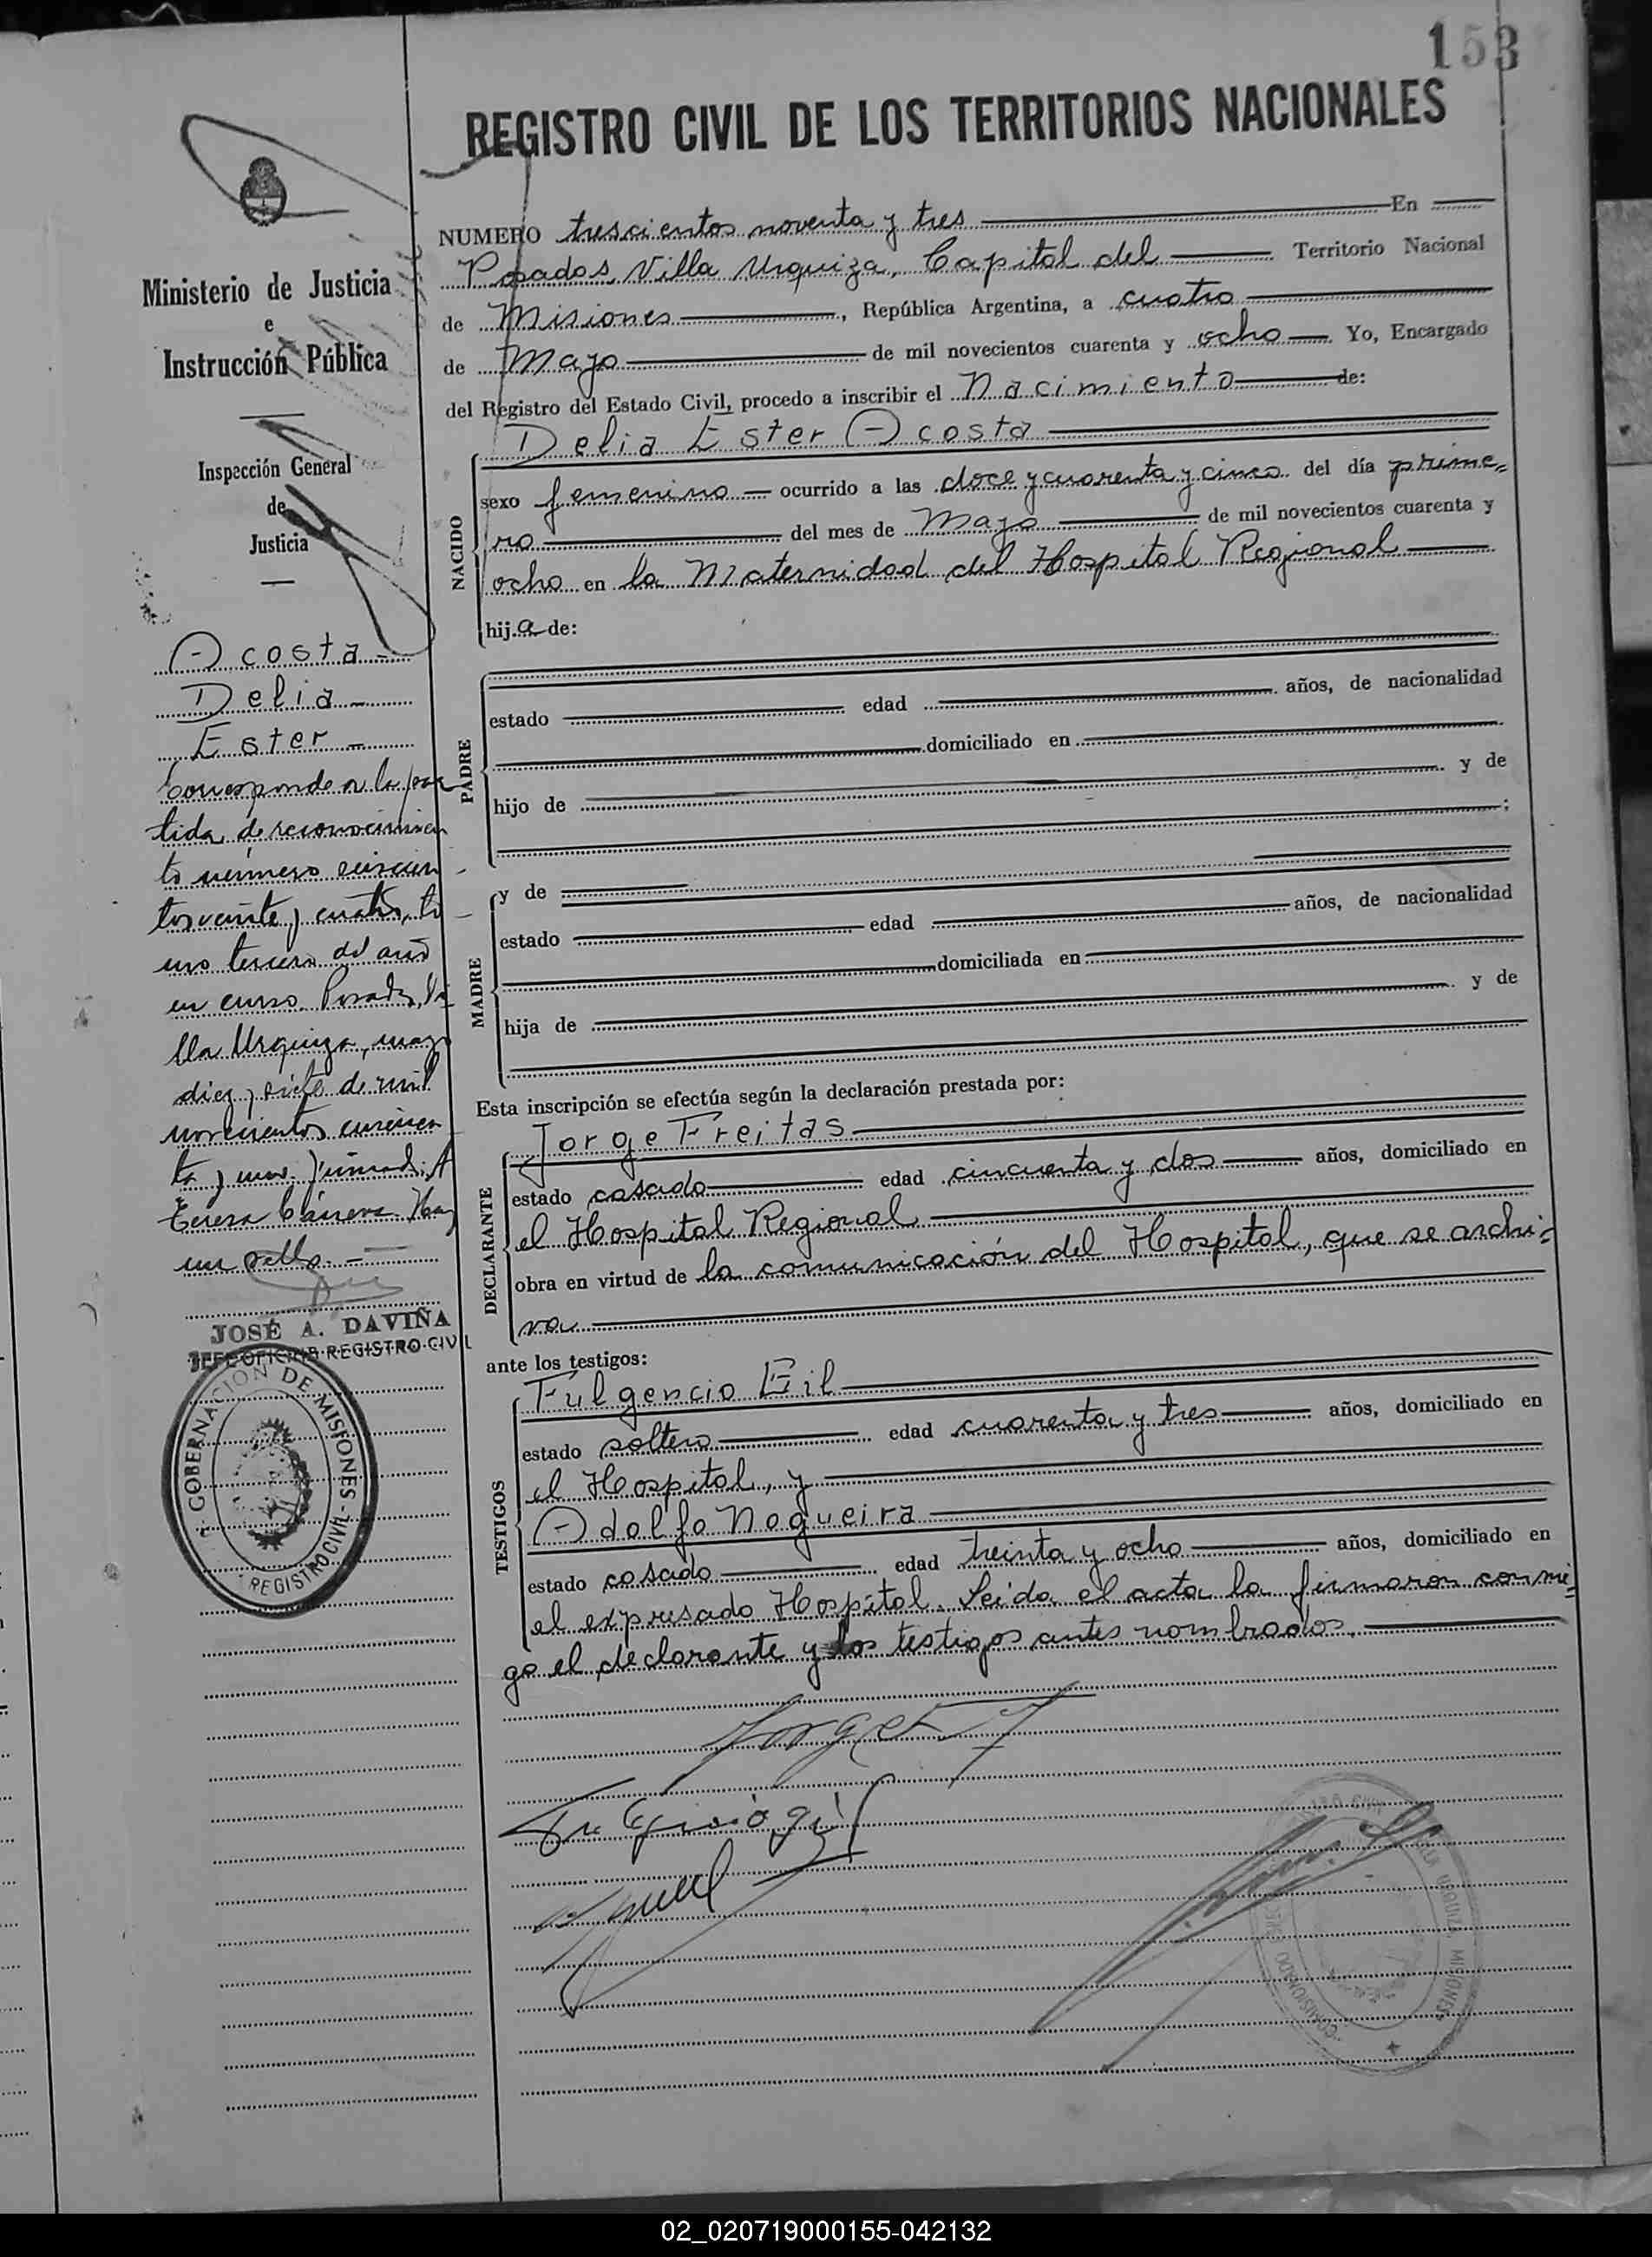 153
REGISTRO CIVIL DE LOS TERRITORIOS NACIONALES
Ministerio de Justicia
e
Instrucción Pública
Inspección General
de
Justicia
Acosta
Delia
Ester
Corresponde a la par
tida de reconocimien
to número
tos veinte y cuatro, to
mo tercero del año
en curso. Posadas, Vi
lla Urquiza, mayo
diez y siete de mil
novecientos cuaren
ta y
Teresa Hay
un sello.
JOSÉ A. DAVIÑA
JEFE OFICINA REGISTRO CIVIL
GOBERNACION DE MISIONES - REGISTRO CIVIL
NUMERO trescientos noventa y tres En
Posadas, Villa Urquiza, Capital del Territorio Nacional
de Misiones, República Argentina, a cuatro
de Mayo de mil novecientos cuarenta y ocho Yo, Encargado
del Registro del Estado Civil, procedo a inscribir el Nacimiento de:
NACIDO
Delia Ester Acosta
sexo femenino ocurrido a las doce y cuarenta y cinco del día prime=
ro del mes de Mayo de mil novecientos cuarenta y
ocho en la Maternidad del Hospital Regional
hija de:
PADRE
estado edad años, de nacionalidad
domiciliado en
hijo de y de
;
MADRE
y de
estado edad años, de nacionalidad
domiciliada en
hija de y de
Esta inscripción se efectúa según la declaración prestada por:
DECLARANTE
Jorge Freitas
estado casado edad cincuenta y dos años, domiciliado en
el Hospital Regional
obra en virtud de la comunicación del Hospital, que se archi=
va
ante los testigos:
TESTIGOS
Fulgencio Gil
estado soltero edad cuarenta y tres años, domiciliado en
el Hospital, y
Adolfo Nogueira
estado casado edad treinta y ocho años, domiciliado en
el expresado Hospital. Leida el acta la firmaron conmi=
go el declarante y los testigos antes nombrados.
Jorge F
02_020719000155-042132